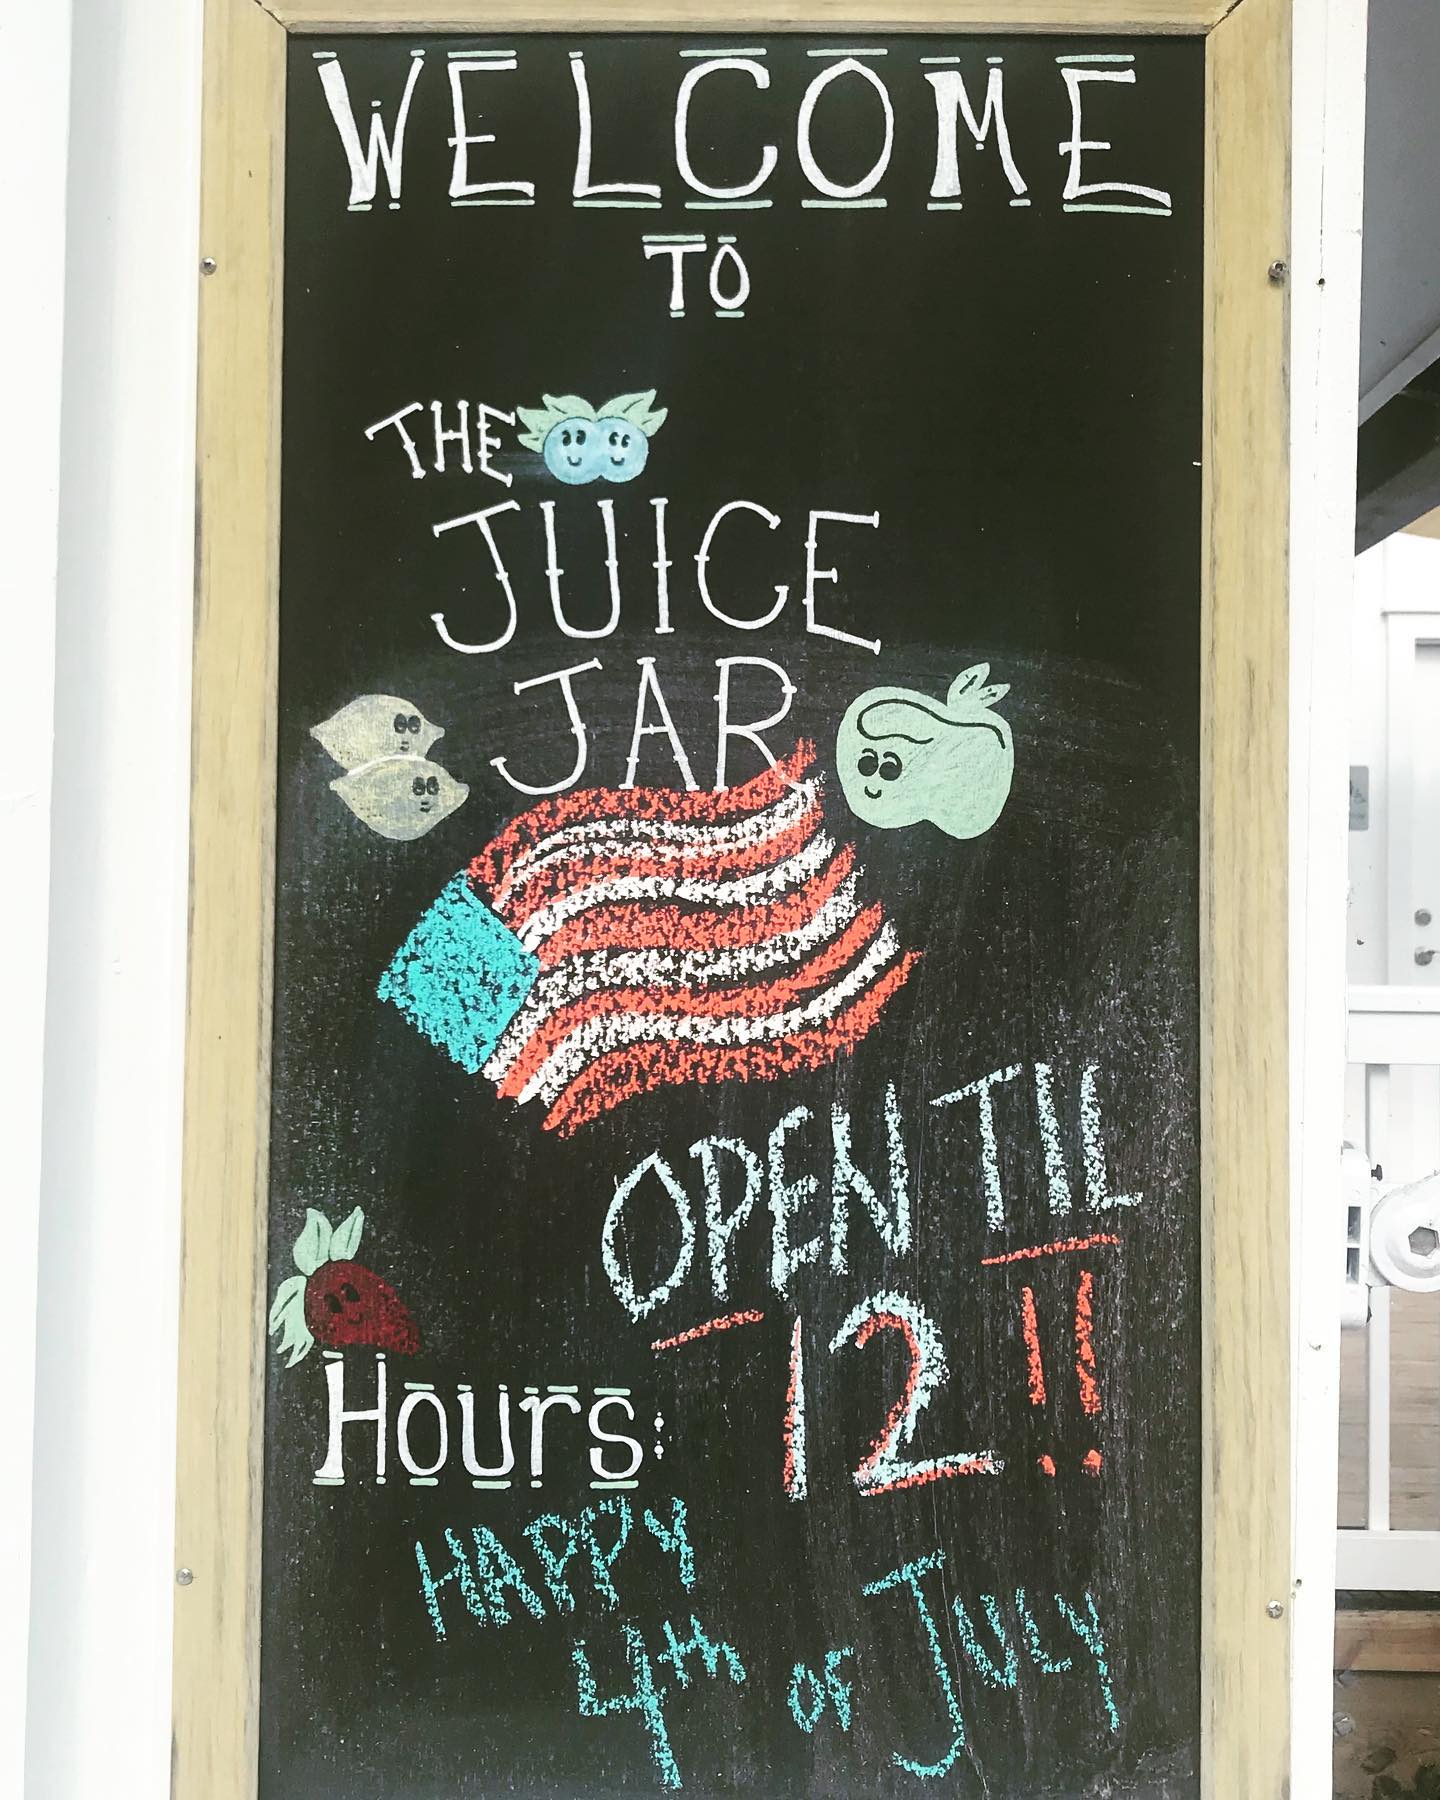 WELCOME
TO
THE
JUICE
JAR
OPEN TIL
12!!
Hours:
HAPPY
4th OF JULY